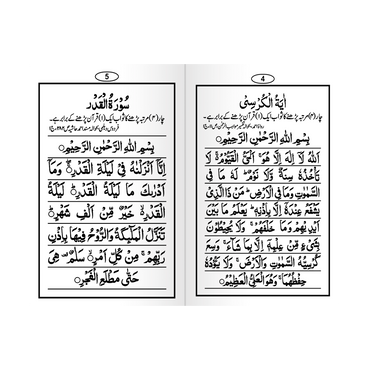 4
اٰیَةُ الْکُرْسِیْ
چار (۴) مرتبہ پڑھنے کا ثواب ایک (۱) قرآن پڑھنے کے برابر ہے۔
بِسْمِ اللّٰهِ الرَّحْمٰنِ الرَّحِیْمِ ۝
اَللّٰهُ لَاۤ اِلٰهَ اِلَّا هُوَ ۚ اَلْحَیُّ الْقَیُّوْمُ ۚ۬ لَا
تَاْخُذُهٗ سِنَةٌ وَّلَا نَوْمٌ ؕ لَهٗ مَا فِی
السَّمٰوٰتِ وَمَا فِی الْاَرْضِ ؕ مَنْ ذَا الَّذِیْ
یَشْفَعُ عِنْدَهٗۤ اِلَّا بِاِذْنِهٖ ؕ یَعْلَمُ مَا بَیْنَ
اَیْدِیْهِمْ وَمَا خَلْفَهُمْ ۚ وَلَا یُحِیْطُوْنَ
بِشَیْءٍ مِّنْ عِلْمِهٖۤ اِلَّا بِمَا شَآءَ ۚ وَسِعَ
کُرْسِیُّهُ السَّمٰوٰتِ وَالْاَرْضَ ۚ وَلَا یَـُٔوْدُهٗ
حِفْظُهُمَا ۚ وَهُوَ الْعَلِیُّ الْعَظِیْمُ ۝
5
سُوْرَةُ الْقَدْرِ
چار (۴) مرتبہ پڑھنے کا ثواب ایک (۱) قرآن پڑھنے کے برابر ہے۔
بِسْمِ اللّٰهِ الرَّحْمٰنِ الرَّحِیْمِ ۝
اِنَّاۤ اَنْزَلْنٰهُ فِیْ لَیْلَةِ الْقَدْرِ ۝ وَمَاۤ
اَدْرٰىكَ مَا لَیْلَةُ الْقَدْرِ ۝ لَیْلَةُ
الْقَدْرِ ۙ خَیْرٌ مِّنْ اَلْفِ شَهْرٍ ۝
تَنَزَّلُ الْمَلٰٓئِكَةُ وَالرُّوْحُ فِیْهَا بِاِذْنِ
رَبِّهِمْ ۚ مِنْ كُلِّ اَمْرٍ ۝ سَلٰمٌ ۛ هِیَ
حَتّٰی مَطْلَعِ الْفَجْرِ ۝